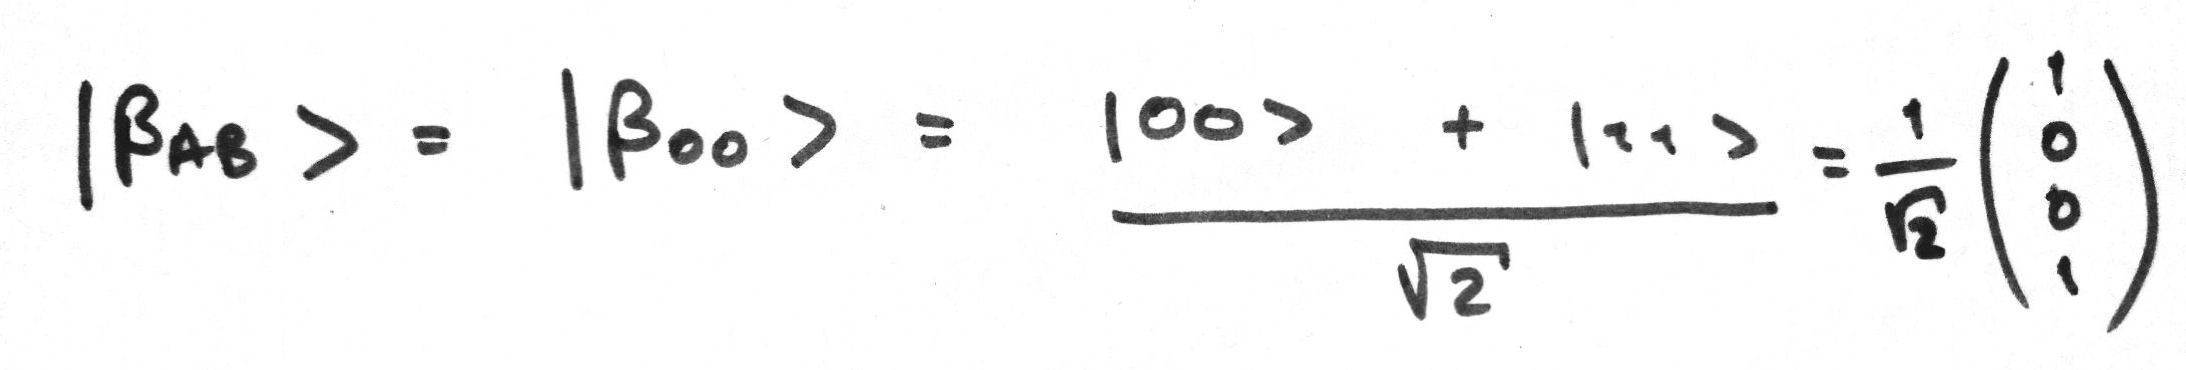 |β_AB> = |β_00> = (|00> + |11>)/√2 = 1/√2 (1 0 0 1)